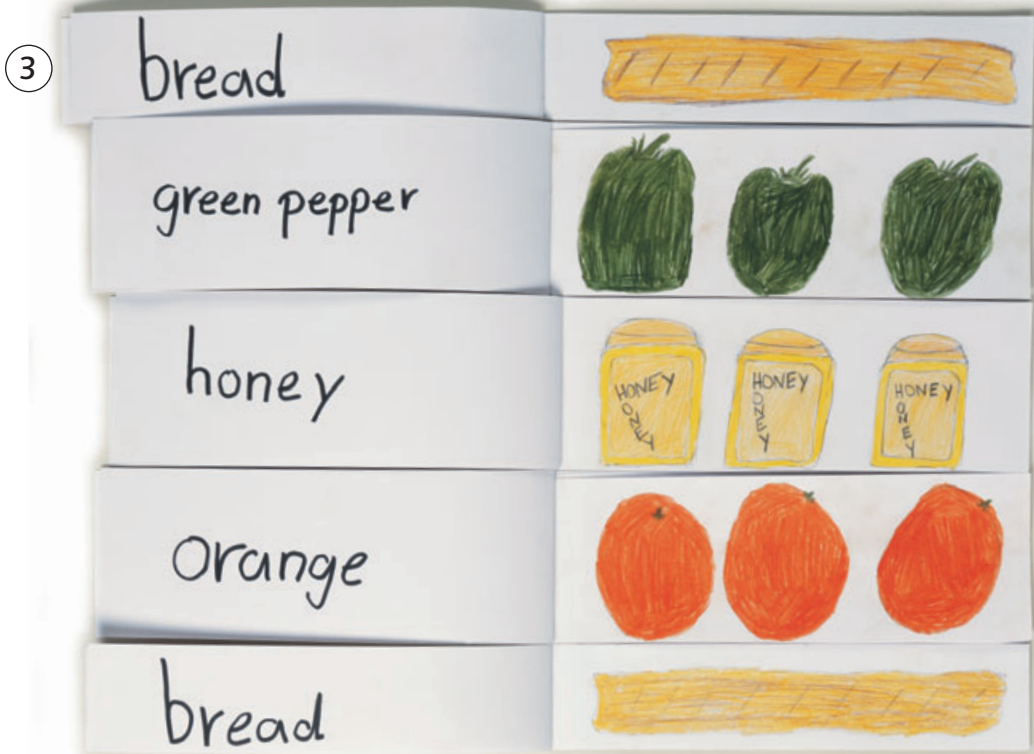 3
bread
green pepper
honey
HONEY HONEY HONEY
ONEY ONEY ONEY
orange
bread